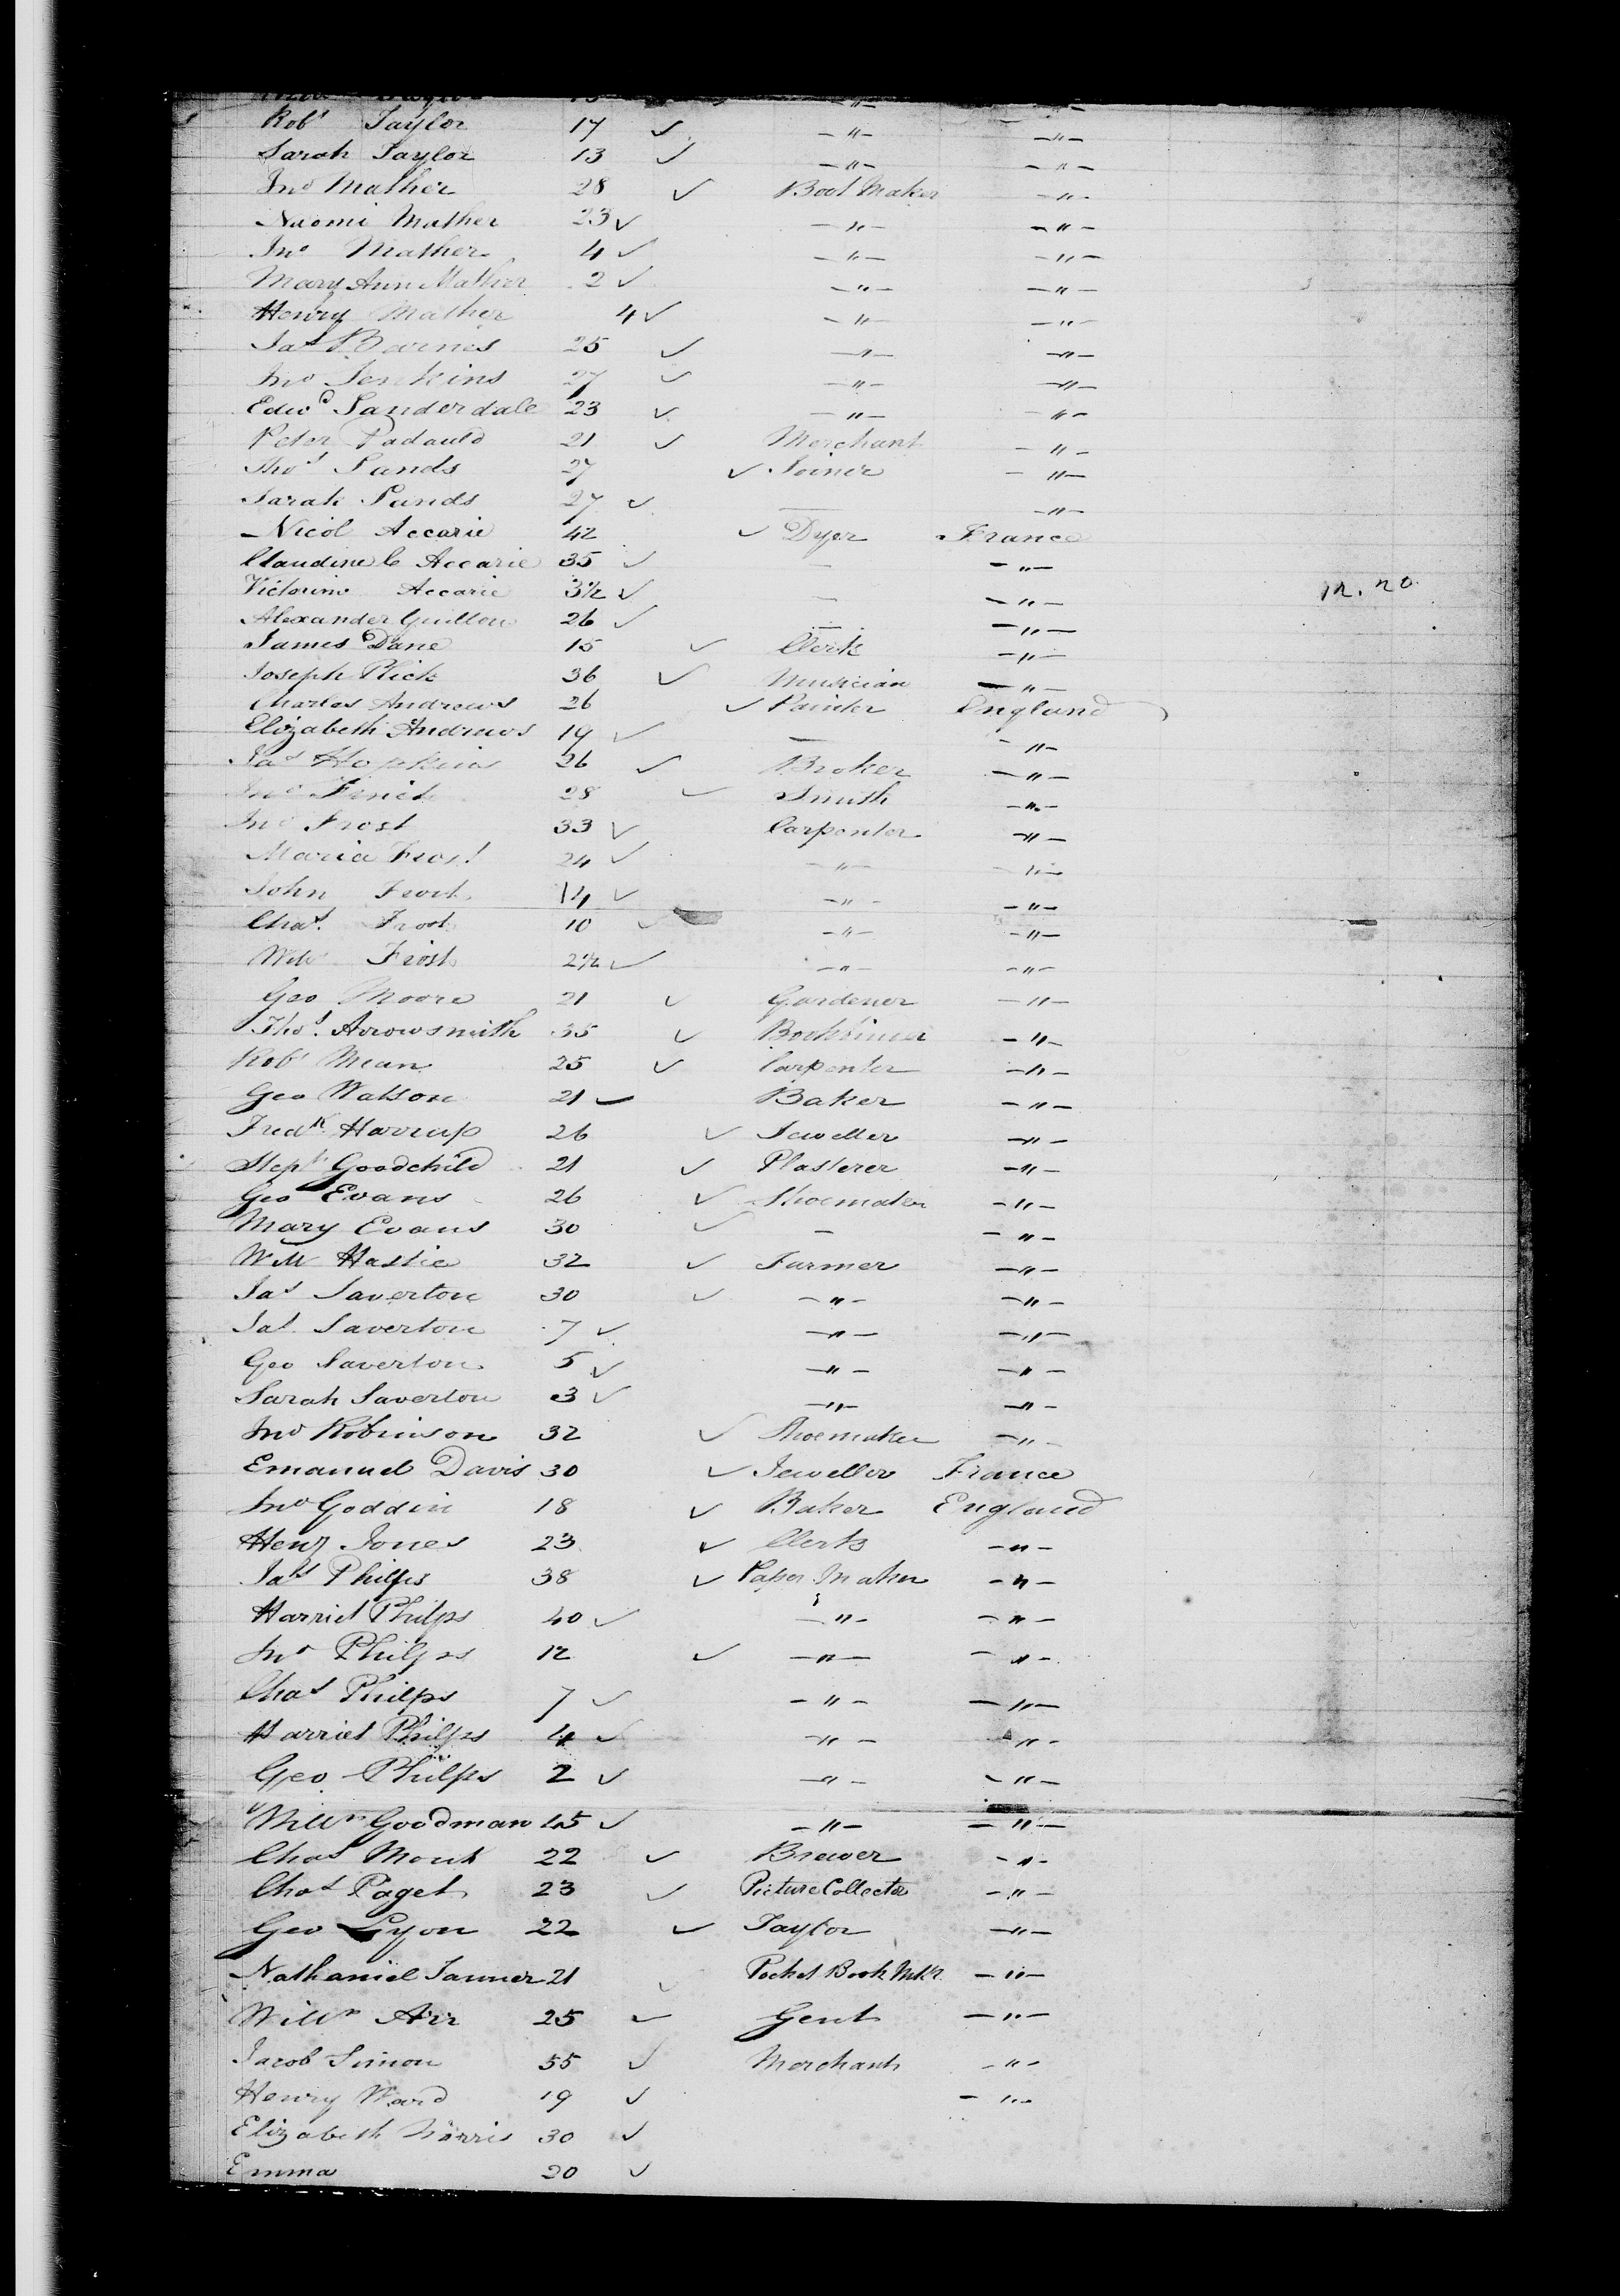 Robt Taylor 17 ✓ -"- -"-
Sarah Taylor 13 ✓ -"- -"-
Jno Mather 28 ✓ Boot Maker -"-
Naomi Mather 23 ✓ -"- -"-
Jno Mather 4 ✓ -"- -"-
Mary Ann Mather 2 ✓ -"- -"-
Henry Mather 4 ✓ -"- -"-
Jas Barnes 25 ✓ -"- -"-
Jno Jenkins 27 ✓ -"- -"-
Edwd Sanderdale 23 ✓ -"- -"-
Peter Padauld 21 ✓ Merchant -"-
Thos Sands 27 ✓ Joiner -"-
Sarah Sands 27 ✓ — -"-
Nicol Accarie 42 ✓ Dyer France
Claudine C Accarie 35 ✓ - -"-
Victorine Accarie 3½ ✓ - -"-
Alexander Guillou 26 ✓ — -"-
James Dane 15 ✓ Clerk -"-
Joseph Plick 36 ✓ Musician -"-
Charles Andrews 26 ✓ Painter England
Elizabeth Andrews 19 ✓ — -"-
Jas Hopkins 26 ✓ Broker -"-
Jno Finch 28 ✓ Smith -"-
Jno Frost 33 ✓ Carpenter -"-
Maria Frost 24 ✓ -"- -"-
John Frost 14 ✓ -"- -"-
Chas. Frost 10 ✓ -"- -"-
Wm Frost 2½ ✓ -"- -"-
Geo Moore 21 ✓ Gardener -"-
Thos. Arrowsmith 35 ✓ Bookbinder -"-
Robt Mean 25 ✓ Carpenter -"-
Geo Watson 21 ✓ Baker -"-
Fredk Harrup 26 ✓ Jeweller -"-
Steph Goodchild 21 ✓ Plasterer -"-
Geo Evans 26 ✓ Shoemaker -"-
Mary Evans 30 ✓ - -"-
Wm Hastie 32 ✓ Farmer -"-
Jas Saverton 30 ✓ -"- -"-
Jas. Saverton 7 ✓ -"- -"-
Geo Saverton 5 ✓ -"- -"-
Sarah Saverton 3 ✓ -"- -"-
Jno Robinson 32 ✓ Shoemaker -"-
Emanuel Davis 30 ✓ Jeweller France
Jno Goddin 18 ✓ Baker England
Heny Jones 23 ✓ Clerk -"-
Jas Philps 38 ✓ Paper Maker -"-
Harriet Philps 40 ✓ -"- -"-
Jno Philps 12 ✓ -"- -"-
Chas Philps 7 ✓ -"- -"-
Harriet Philps 4 ✓ -"- -"-
Geo Philps 2 ✓ -"- -"-
Willm Goodman 45 ✓ -"- -"-
Chas Monk 22 ✓ Brewer -"-
Chas Paget 23 ✓ Picture Collector -"-
Geo Lyon 22 ✓ Taylor -"-
Nathaniel Tanner 21 ✓ Pocket Book Mkr. -"-
Willm Arr 25 ✓ Gent -"-
Jacob Simon 55 ✓ Merchant -"-
Henry Ward 19 ✓ -"-
Elizabeth Norris 30 ✓
Emma 20 ✓